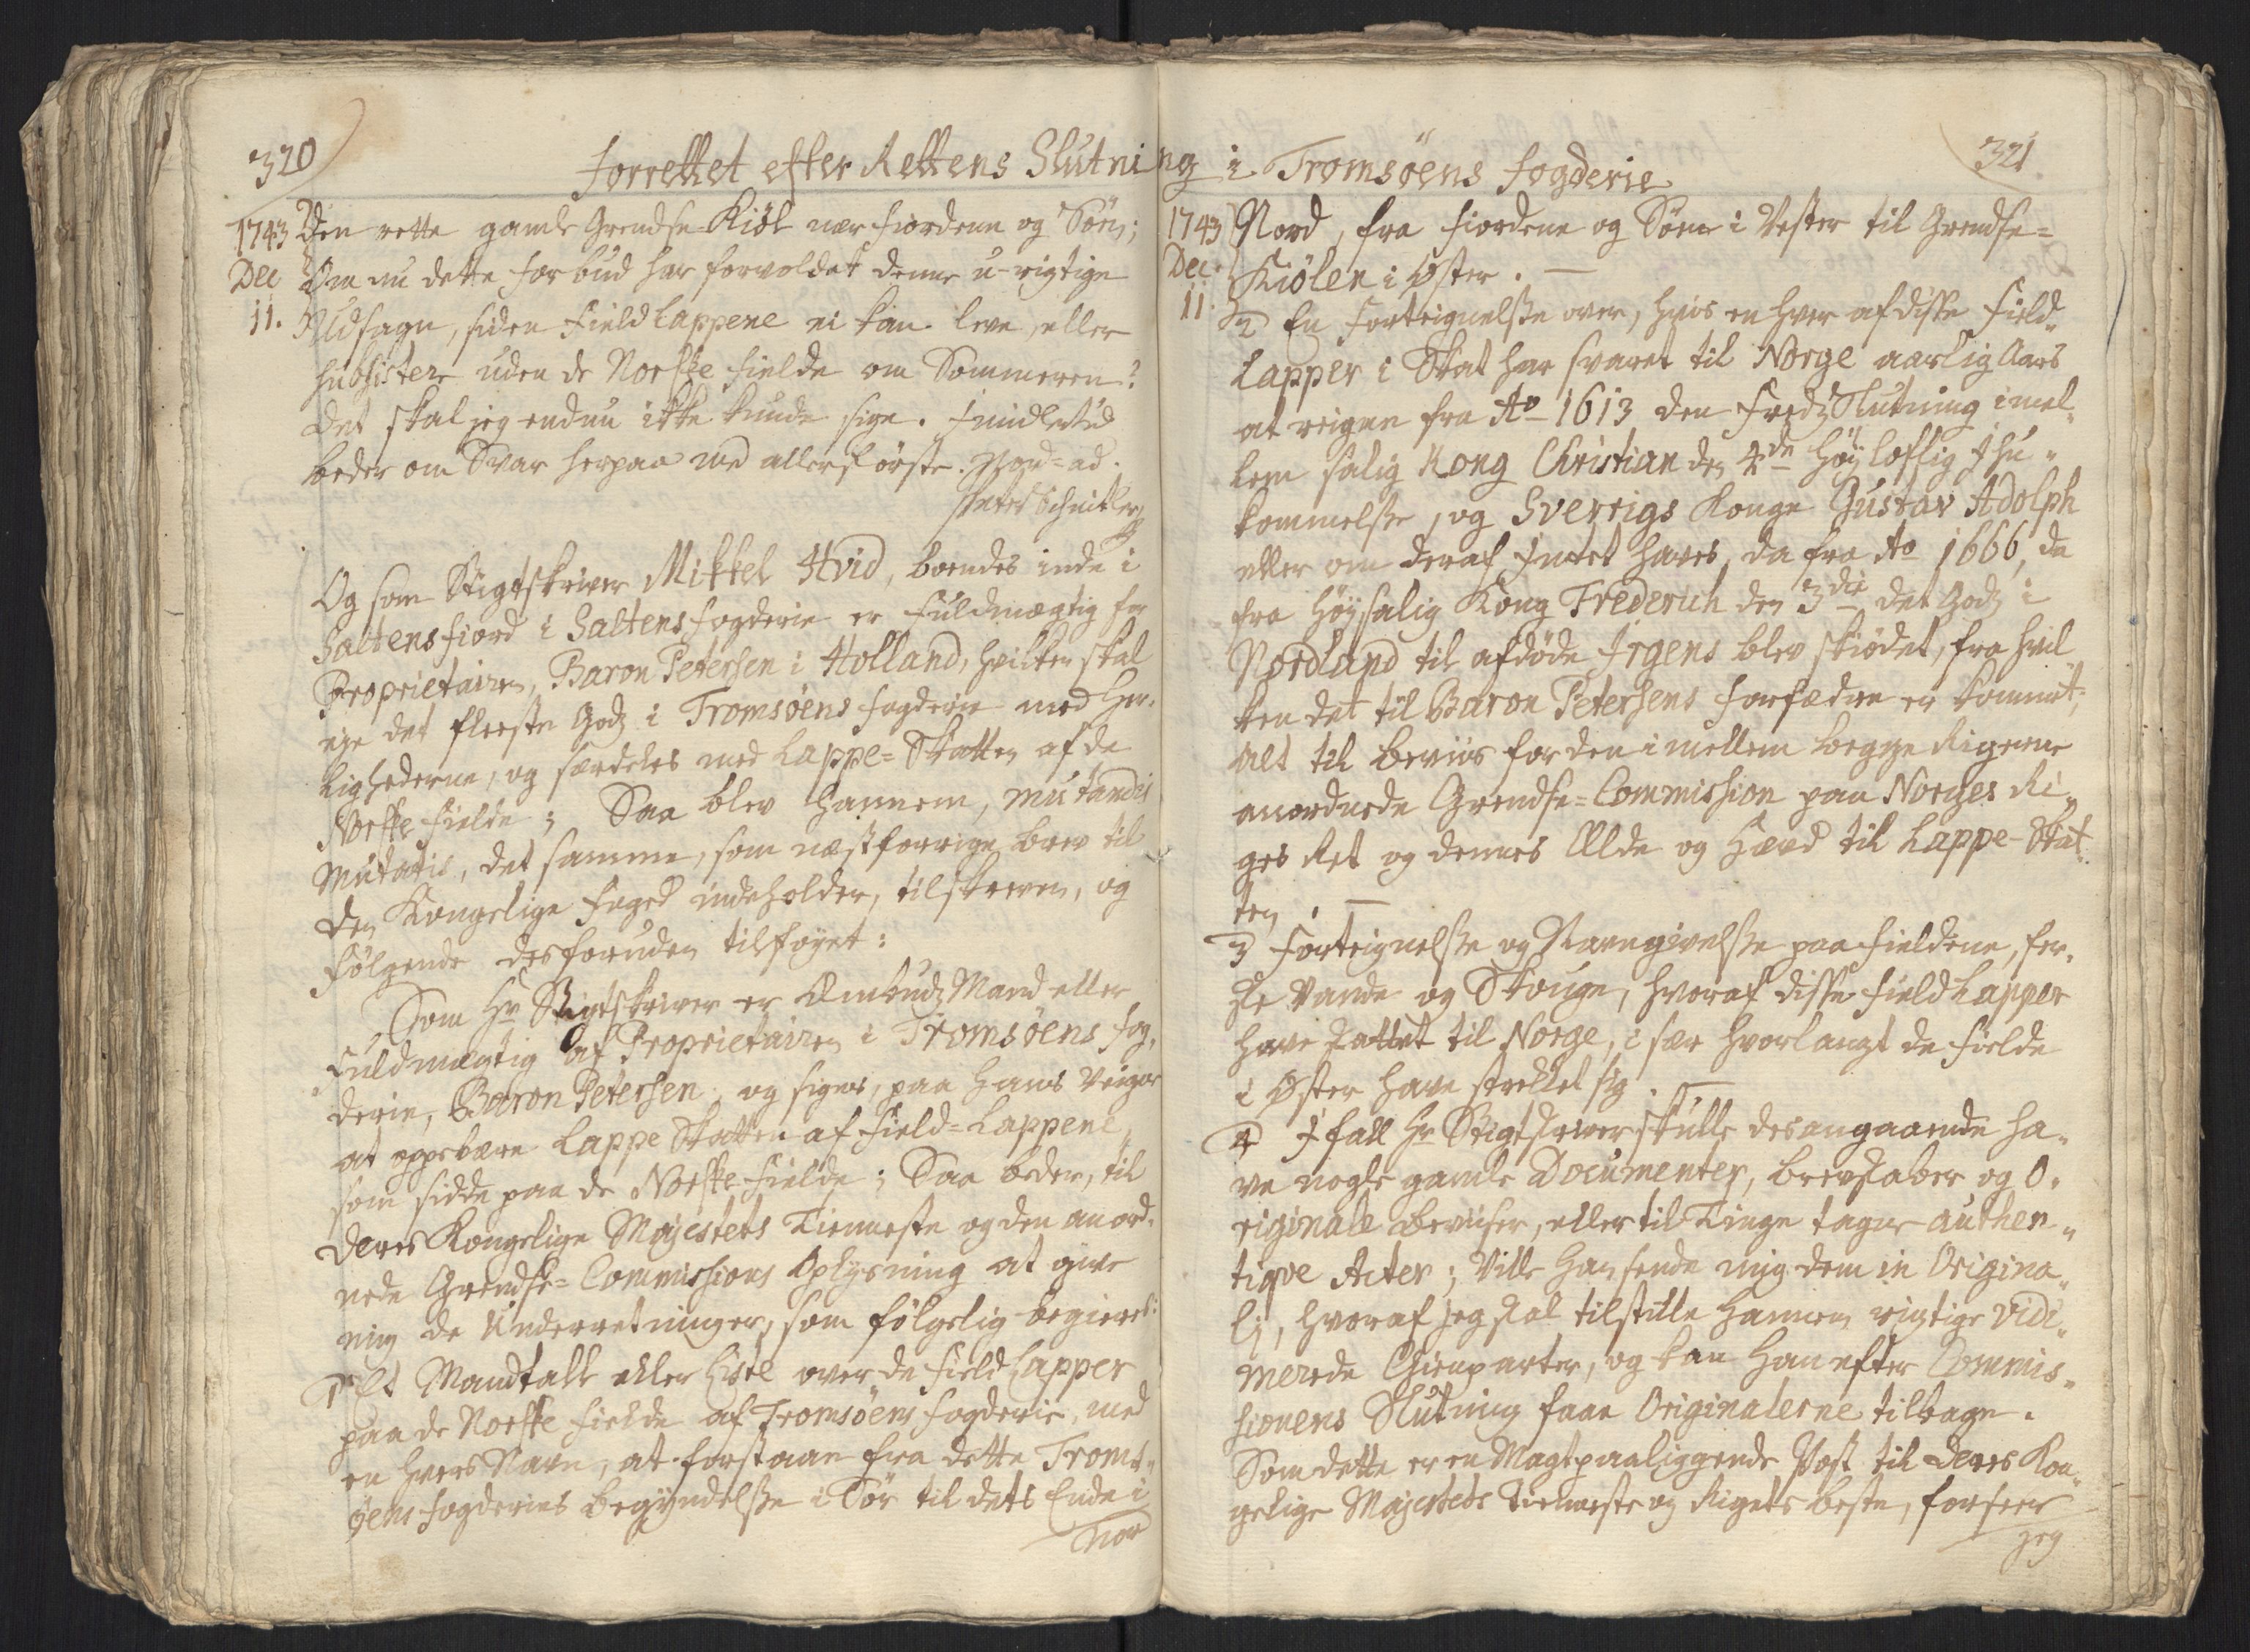 320
forrettet efter Rettens Slutning i Tromsöens fogderie
321
1743 Den rette gamle Grendse-Kiöl nær fiordene og Söen;
Dec Om nu dette forbud har forvoldet denne u-rigtige
11. Udsagn, siden FieldLappene ei kan leve, eller
subsistere uden de Norske fielde om Sommeren?
Det skal jeg endnu ikke kunde sige. Imidlertid
beder om Svar herpaa med allerförste.
Peter Schnitler
Og som Stigtskriver Mikkel Hvid, boendes inde i
Saltensfiord i Saltens fogderie er fuldmægtig for
Proprietairen, Baron Petersen i Holland, hvilken skal
eye det fleeste Godz i Tromsöens fogderie med Her-
lighederne, og særdeles med Lappe-Skatten af de
Norske fielde; Saa blev hannem, mutandis
mutatis, det samme, som næstforrige brev til
den Kongelige foged indeholder, tilskreven, og
fölgende desforuden tilföyet:
Som Hr Stigtskriver er OmbudzMand eller
Fuldmægtig af Proprietairen i Tromsöens fog-
derie, Baron Petersen, og siges, paa hans veigne
at oppebære Lappe Skatten af Field-Lappene,
som sidde paa de Norske fielde; Saa beder, til
Deres Kongelige Majestets Tienneste og den anord-
nede Grendse-Commissions Oplysning at give
mig de Underretninger, som fölgelig begieres:
1 Et Mandtall eller Liste over de Field Lapper
paa de Norske fielde af Tromsöens fogderie, med
en hvers Navn, at forstaae fra dette Troms-
öens fogderies begyndelse i Sör til dets Ende i
Nor
1743 Nord, fra fiordene og Söen i Vester til Grendse-
Dec. Kiölen i Öster. —
11. 2 En Forteignelse over, hvis en hver af disse Field-
Lapper i Skat har svaret til Norge aarlig Aars
at reigne fra Ao 1613 den fredz Slutning imel-
lem salig Kong Christian den 4de höyloflig Ihu-
kommelse, og Sverrigs Konge Gustav Adolph
eller om deraf Intet haves, da fra Ao 1666, da
fra höysalig Kong Frederich den 3die det Godz i
Nordland til afdöde Irgens blev skiödet, fra hvil
ken det til Baron Petersens forfædre er kommet;
Alt til beviis for den imellem begge Rigerne
anordnede Grendse-Commission paa Norges Ri-
ges Ret og dennes Ælde og Hævd til Lappe-Skat-
ten. —
3 Forteignelse og Navngivelse paa Fieldene, fer-
ske Vande og Skouge, hvoraf disse Field Lapper
have skattet til Norge, i sær hvorlangt de fielde
i Öster have strekket sig. —
4 I fall Hr Stigtskriver skulle desangaaende ha-
ve nogle gamle Documenter, brevskaber og O-
riginale beviiser, eller til Tinge tagne authen-
tiqve Acter; Ville han sende mig dem in Origina-
li, hvoraf jeg skal tilstille hannem rigtige Vidi-
merede Gienparter, og kan han efter Commis-
sionens Slutning faae Originalerne tilbage.
Som dette er en Magtpaaliggende Post til Deres Kon-
gelige Majestets Tienneste og Rigets beste, forseer
jeg